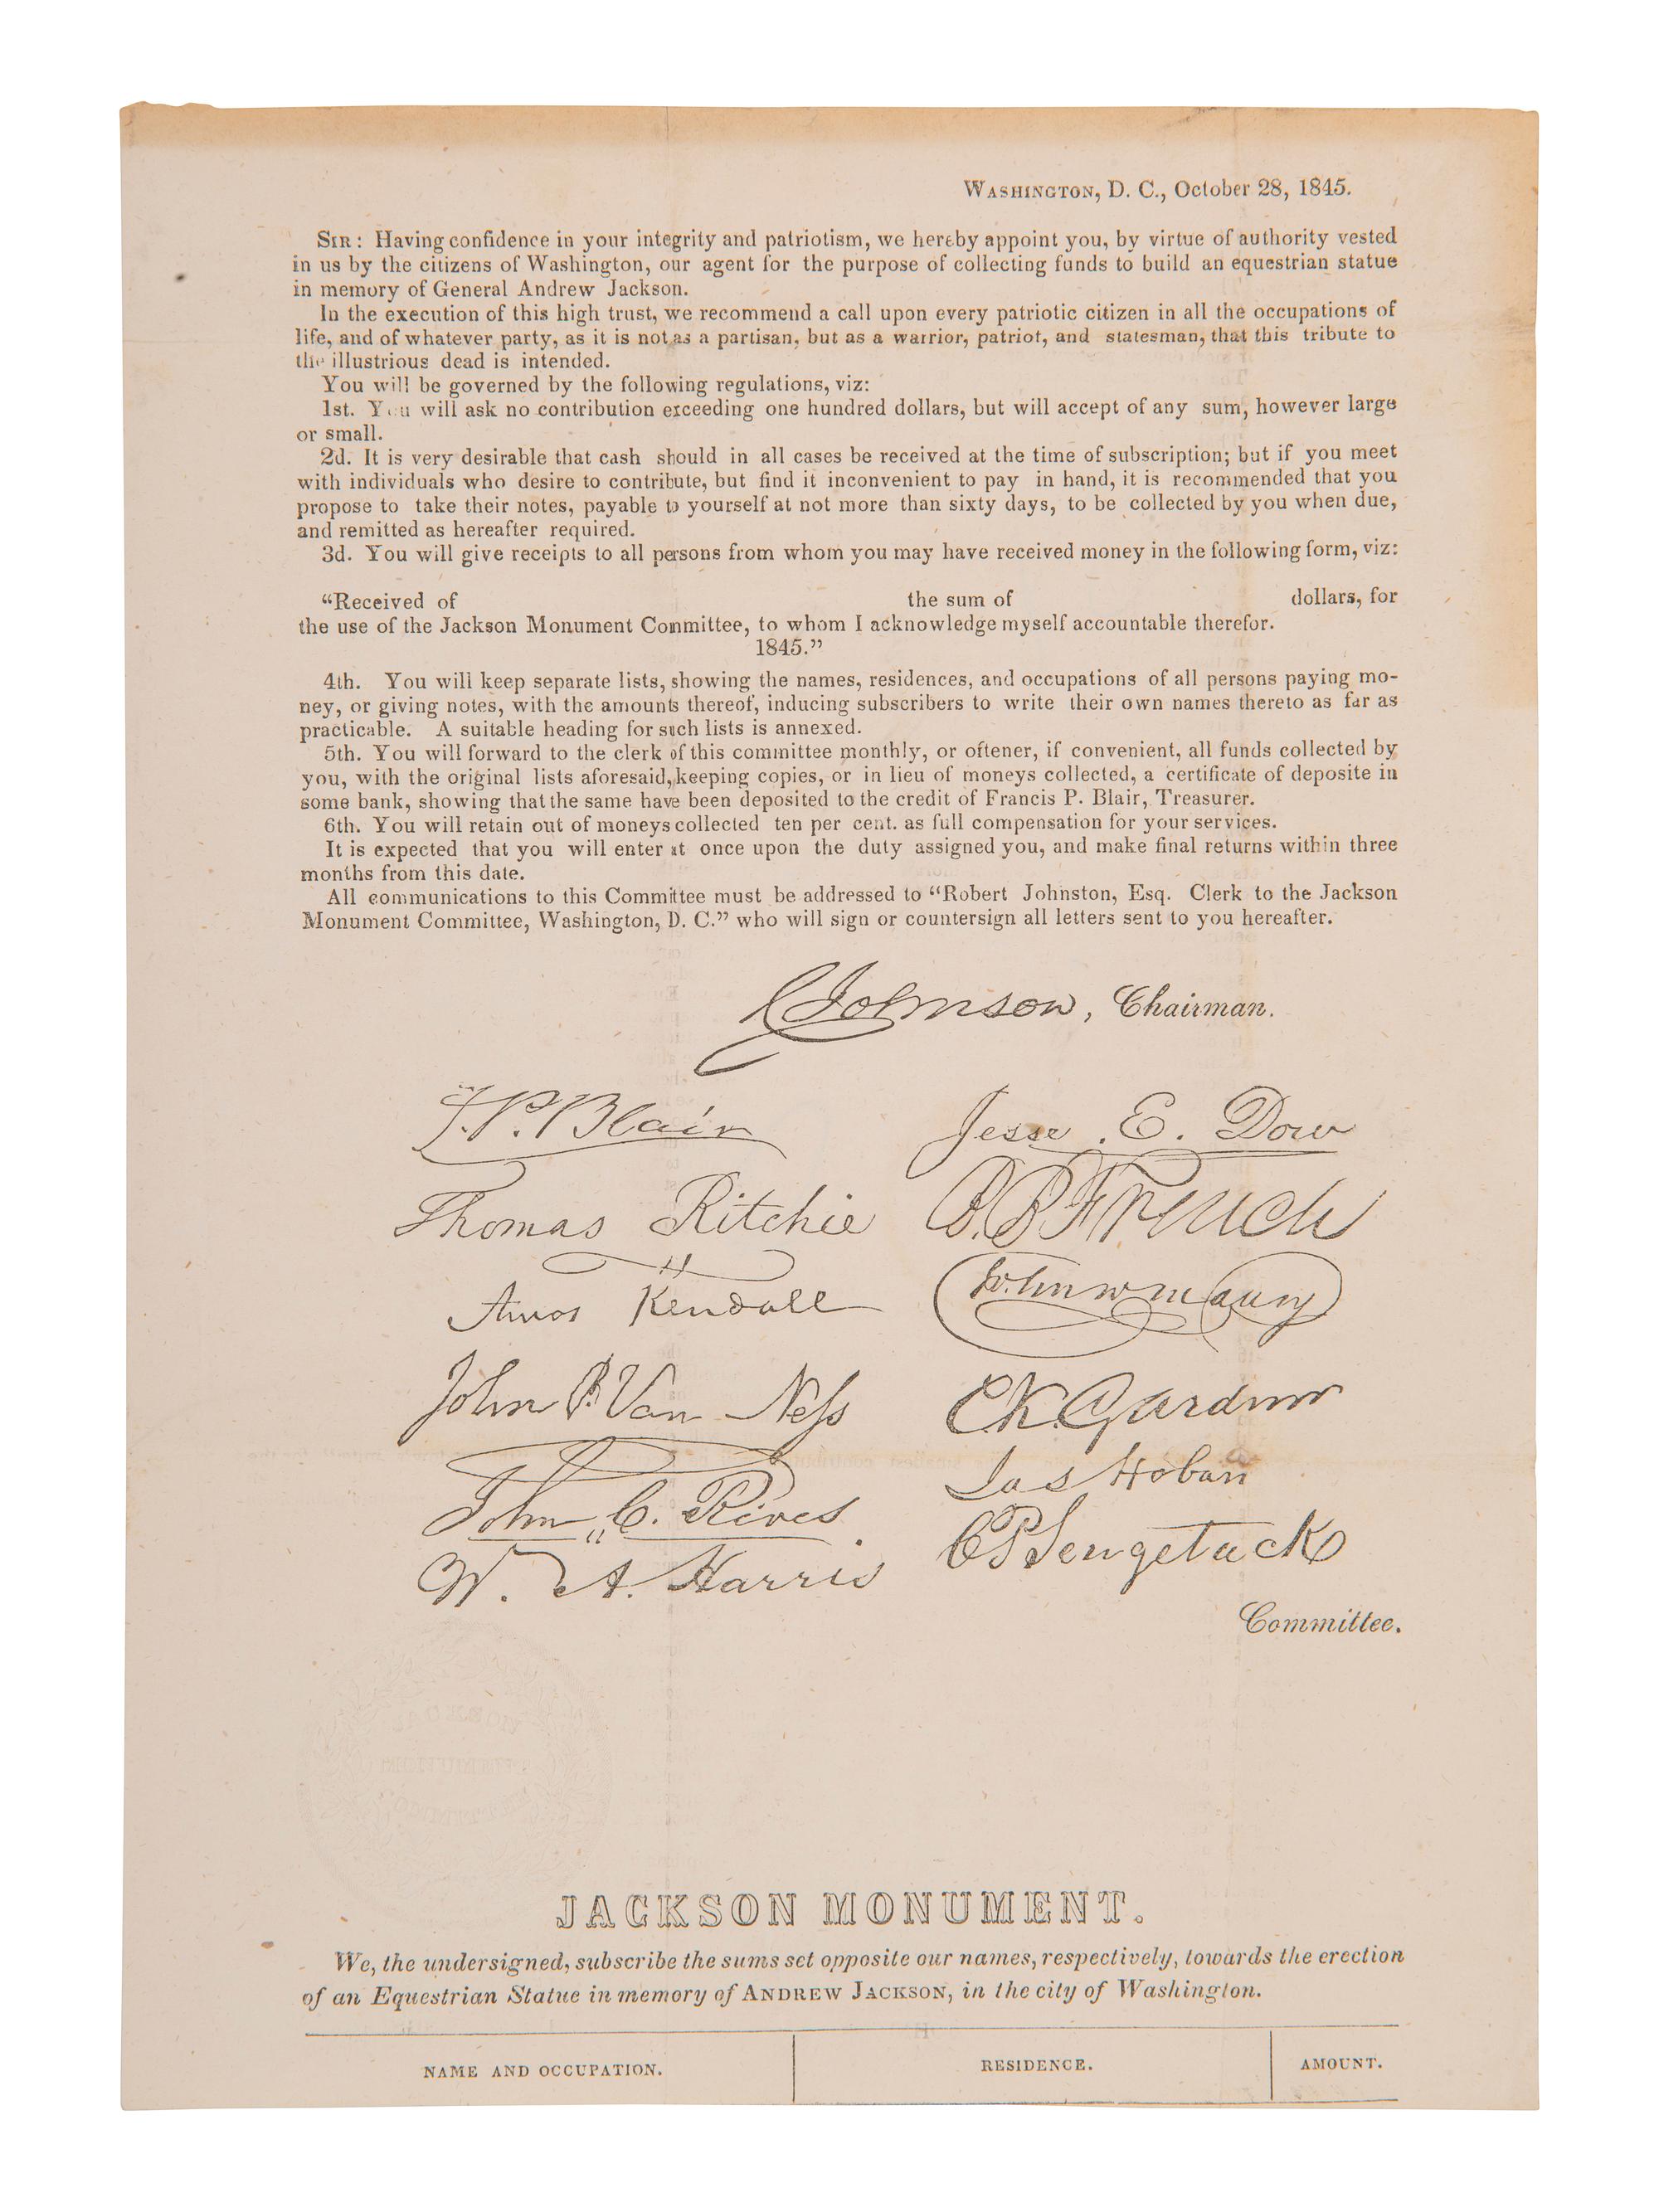 WASHINGTON, D. C., October 28, 1845.
SIR: Having confidence in your integrity and patriotism, we hereby appoint you, by virtue of authority vested
in us by the citizens of Washington, our agent for the purpose of collecting funds to build an equestrian statue
in memory of General Andrew Jackson.
In the execution of this high trust, we recommend a call upon every patriotic citizen in all the occupations of
life, and of whatever party, as it is not as a partisan, but as a warrior, patriot, and statesman, that this tribute to
the illustrious dead is intended.
You will be governed by the following regulations, viz:
1st. You will ask no contribution exceeding one hundred dollars, but will accept of any sum, however large
or small.
2d. It is very desirable that cash should in all cases be received at the time of subscription; but if you meet
with individuals who desire to contribute, but find it inconvenient to pay in hand, it is recommended that you
propose to take their notes, payable to yourself at not more than sixty days, to be collected by you when due,
and remitted as hereafter required.
3d. You will give receipts to all persons from whom you may have received money in the following form, viz:
“Received of the sum of dollars, for
the use of the Jackson Monument Committee, to whom I acknowledge myself accountable therefor.
1845.”
4th. You will keep separate lists, showing the names, residences, and occupations of all persons paying mo-
ney, or giving notes, with the amounts thereof, inducing subscribers to write their own names thereto as far as
practicable. A suitable heading for such lists is annexed.
5th. You will forward to the clerk of this committee monthly, or oftener, if convenient, all funds collected by
you, with the original lists aforesaid, keeping copies, or in lieu of moneys collected, a certificate of deposite in
some bank, showing that the same have been deposited to the credit of Francis P. Blair, Treasurer.
6th. You will retain out of moneys collected ten per cent. as full compensation for your services.
It is expected that you will enter at once upon the duty assigned you, and make final returns within three
months from this date.
All communications to this Committee must be addressed to “Robert Johnston, Esq. Clerk to the Jackson
Monument Committee, Washington, D. C.” who will sign or countersign all letters sent to you hereafter.
C Johnson, Chairman.
F. P. Blair
Thomas Ritchie
Amos Kendall
John P. Van Ness
John C. Rives
W. A. Harris
Jesse E. Dow
B. B. French
John W Maury
C. K. Gardner
Jas Hoban
C P Sengstack
Committee.
JACKSON MONUMENT.
We, the undersigned, subscribe the sums set opposite our names, respectively, towards the erection
of an Equestrian Statue in memory of ANDREW JACKSON, in the city of Washington.
NAME AND OCCUPATION. RESIDENCE. AMOUNT.